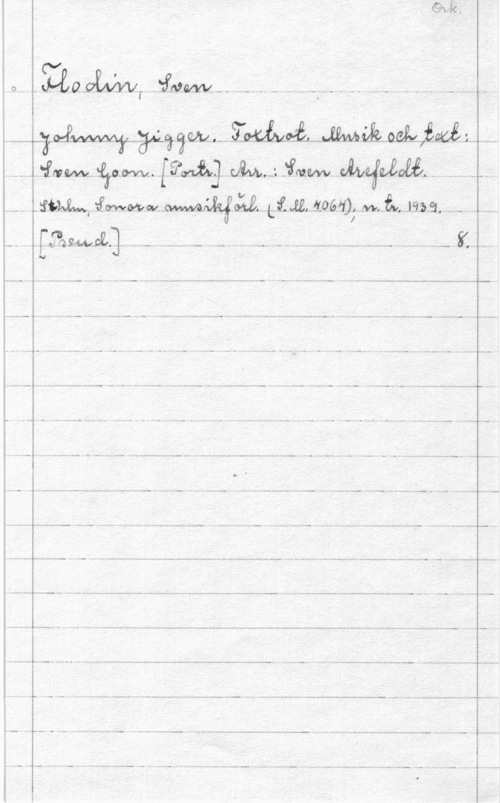 Ork.
Flodin, Sven
Johnny Jigger. Foxtrot. Musik och text:
Sven Goon. [Portr.] Arr.: Sven Arefeldt.
Sthlm, Sonora musikförl. (S.M. 4064), n. tr. 1939.
[Pseud.] 8.